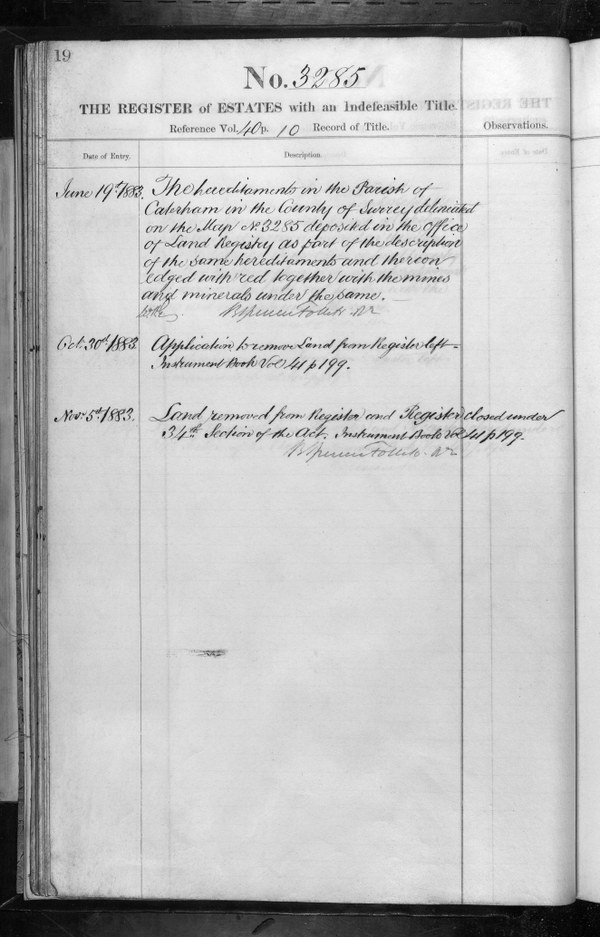 19
No. 3285
THE REGISTER of ESTATES with an Indefeasible Title.
Reference Vol. 40 p. 10 Record of Title.
Observations.
Date of Entry.
Description.
June 19th 1883.
The hereditaments in the Parish of
Caterham in the County of Surrey delineated
on the Map No. 3285 deposited in the Office
of Land Registry as part of the description
of the same hereditaments and thereon
edged with red together with the mines
and minerals under the same.
Oct. 30th 1883.
Application to remove Land from Register left –
Instrument Book Vol 41 p 199.
Novr 5th 1883.
Land removed from Register and Register closed under
34th Section of the Act. Instrument Book Vol 41 p 199.